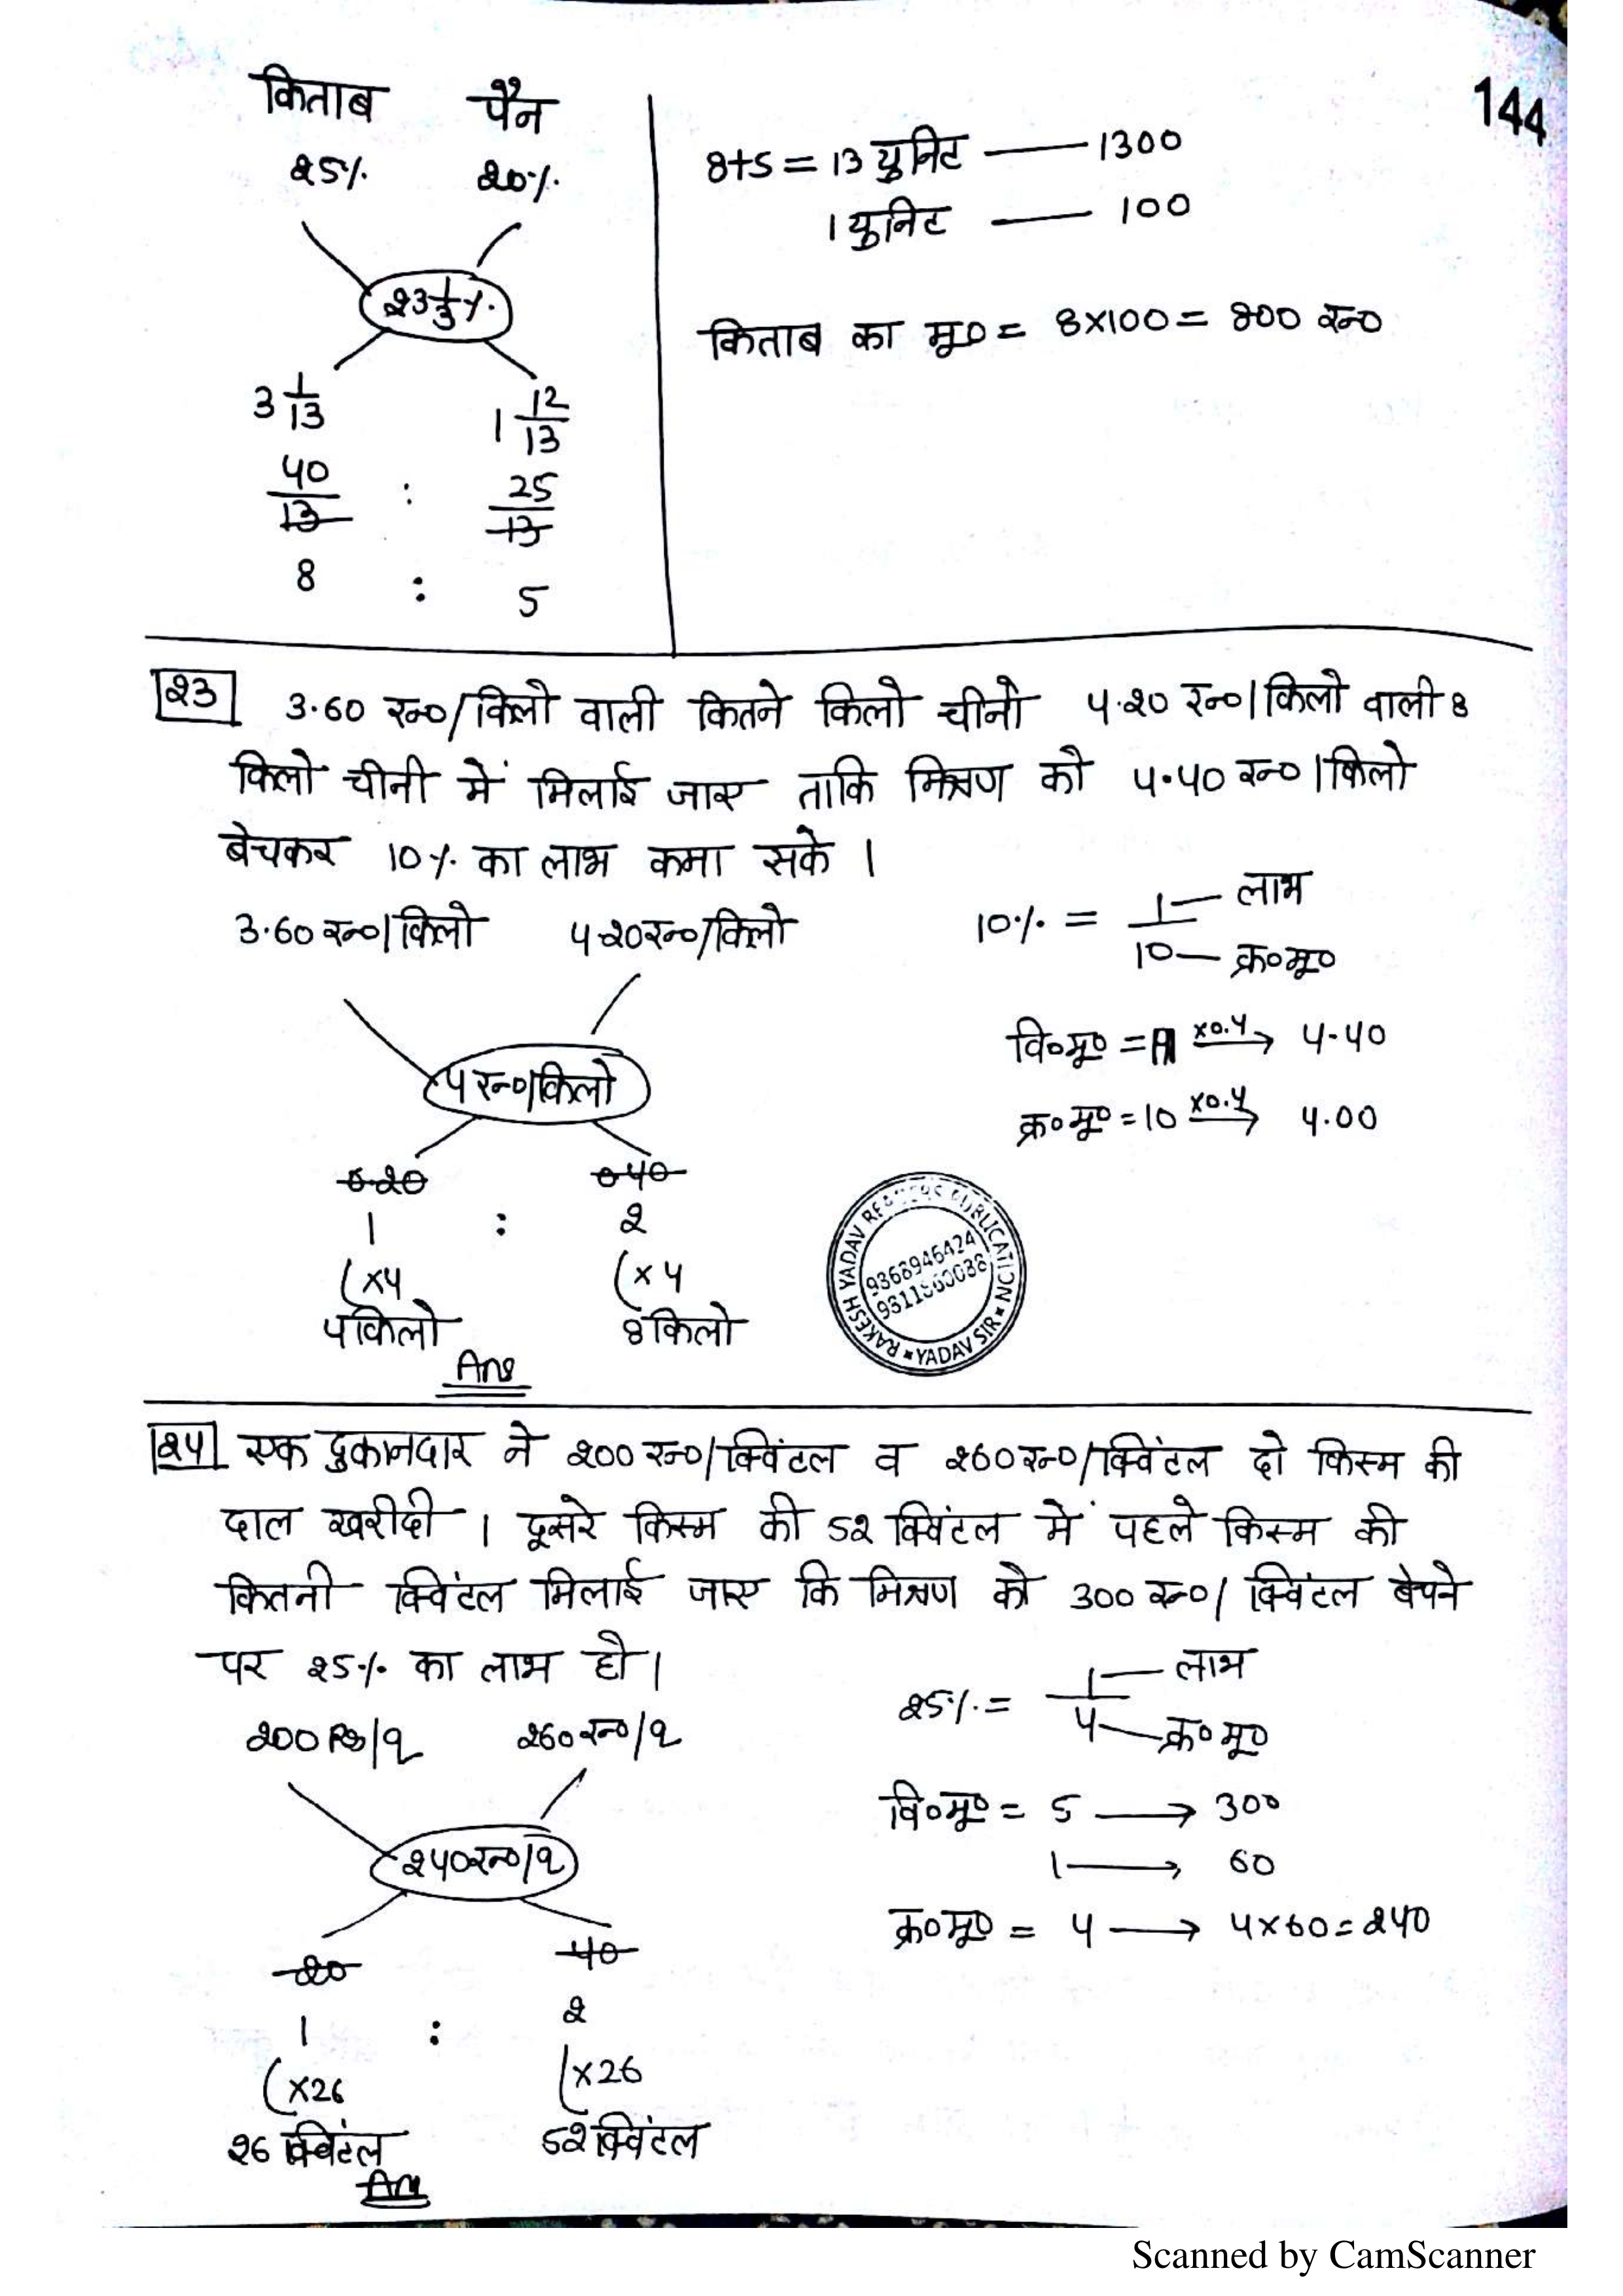 144
किताब पैन
25% 20%
23 1/3 %
3 1/13 1 12/13
40/13 : 25/13
8 : 5
8+5 = 13 युनिट — 1300
1 युनिट — 100
किताब का मू० = 8×100 = 800 रु०
23 3.60 रु०/किलो वाली कितने किलो चीनी 4.20 रु०/किलो वाली 8
किलो चीनी में मिलाई जाए ताकि मिश्रण को 4.40 रु०/किलो
बेचकर 10% का लाभ कमा सके ।
3.60 रु०/किलो 4.20 रु०/किलो
4 रु०/किलो
0.20 0.40
1 : 2
(×4 (×4
4 किलो 8 किलो
Ans
10% = 1 — लाभ
10 — क्र०मू०
वि०मू० = 11 ×0.4→ 4.40
क्र०मू० = 10 ×0.4→ 4.00
RAKESH YADAV READERS PUBLICATION
YADAV SIR
9368946424
24 एक दुकानदार ने 200 रु०/क्विंटल व 260 रु०/क्विंटल दो किस्म की
दाल खरीदी । दूसरे किस्म की 52 क्विंटल में पहले किस्म की
कितनी क्विंटल मिलाई जाए कि मिश्रण को 300 रु०/क्विंटल बेचने
पर 25% का लाभ हो ।
200 Rs/q 260 रु०/q
240 रु०/q
20 40
1 : 2
(×26 (×26
26 क्विंटल 52 क्विंटल
Ans
25% = 1 — लाभ
4 — क्र०मू०
वि०मू० = 5 → 300
1 → 60
क्र०मू० = 4 → 4×60 = 240
Scanned by CamScanner